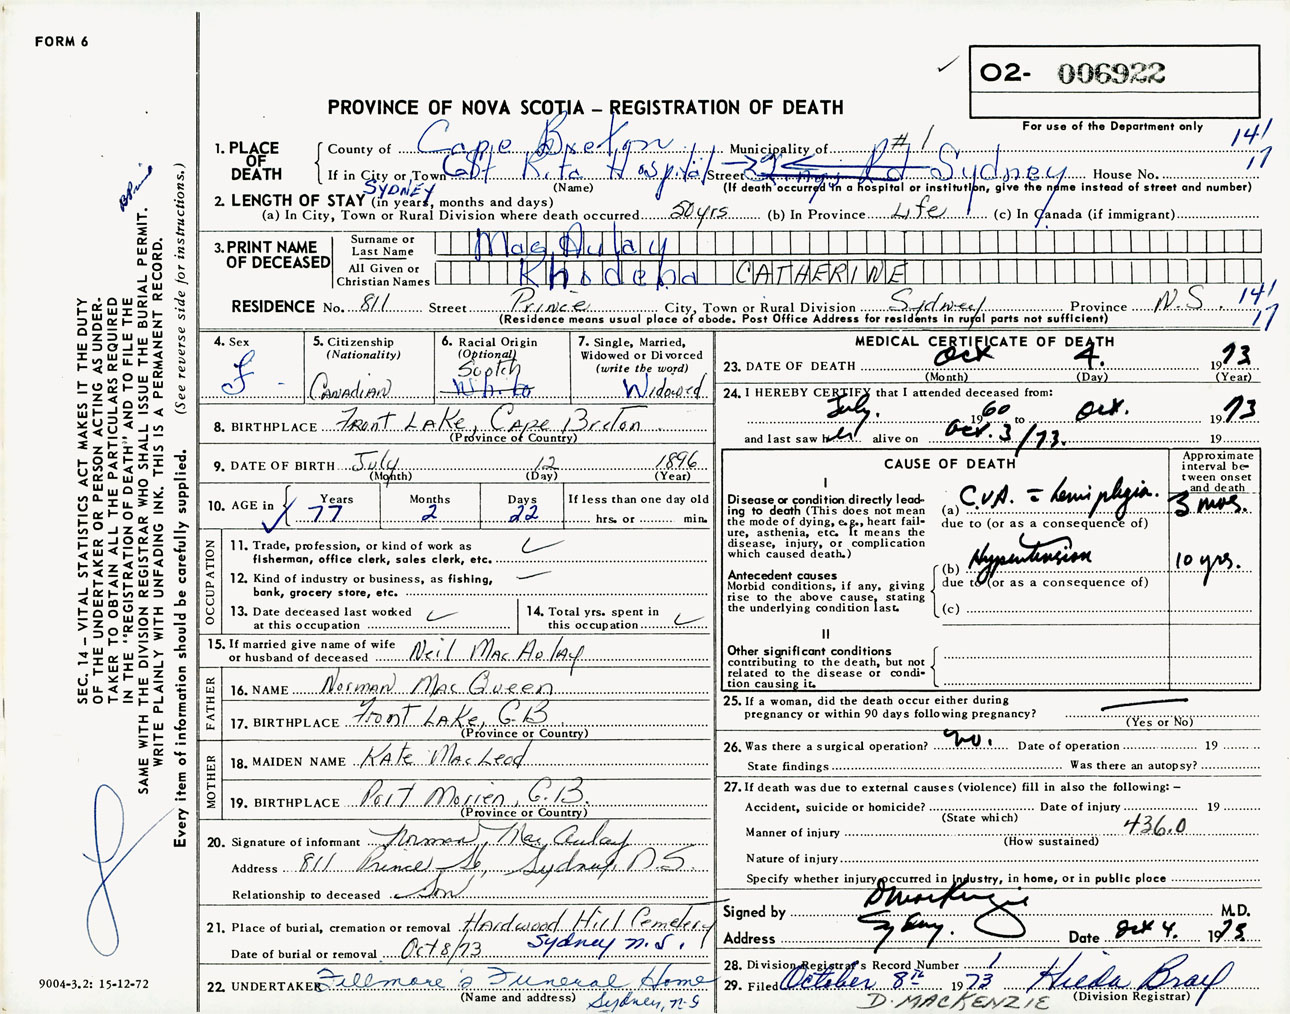 FORM 6
O2- 006922
PROVINCE OF NOVA SCOTIA – REGISTRATION OF DEATH
For use of the Department only
1. PLACE OF DEATH
County of Cape Breton Municipality of #1
141
17
If in City or Town St Rita Hospital Street Rd Sydney House No.
SYDNEY
(Name)
(If death occurred in a hospital or institution, give the name instead of street and number)
2. LENGTH OF STAY (in years, months and days)
(a) In City, Town or Rural Division where death occurred 50 yrs (b) In Province Life (c) In Canada (if immigrant)
3. PRINT NAME OF DECEASED
Surname or Last Name MacAulay
All Given or Christian Names Rhodena CATHERINE
RESIDENCE No. 811 Street Prince City, Town or Rural Division Sydney Province N.S. 141
17
(Residence means usual place of abode. Post Office Address for residents in rural parts not sufficient)
4. Sex
F
5. Citizenship
(Nationality)
Canadian
6. Racial Origin
(Optional)
Scotch
White
7. Single, Married, Widowed or Divorced
(write the word)
Widowed
8. BIRTHPLACE Front Lake, Cape Breton
(Province or Country)
9. DATE OF BIRTH July 12 1896
(Month) (Day) (Year)
10. AGE in
Years Months Days If less than one day old
77 2 22 hrs. or min.
OCCUPATION
11. Trade, profession, or kind of work as
fisherman, office clerk, sales clerk, etc.
12. Kind of industry or business, as fishing,
bank, grocery store, etc.
13. Date deceased last worked
at this occupation
14. Total yrs. spent in
this occupation
15. If married give name of wife
or husband of deceased Neil MacAulay
FATHER
16. NAME Norman MacQueen
17. BIRTHPLACE Front Lake, C.B.
(Province or Country)
MOTHER
18. MAIDEN NAME Kate MacLeod
19. BIRTHPLACE Port Morien, C.B.
(Province or Country)
20. Signature of informant Norman MacAulay
Address 811 Prince St, Sydney, N.S.
Relationship to deceased Son
21. Place of burial, cremation or removal Hardwood Hill Cemetery
Date of burial or removal Oct 8/73 Sydney N.S.
22. UNDERTAKER Fillmore's Funeral Home
(Name and address) Sydney, N.S
MEDICAL CERTIFICATE OF DEATH
23. DATE OF DEATH Oct 4. 1973
(Month) (Day) (Year)
24. I HEREBY CERTIFY that I attended deceased from:
July. 1960 to Oct. 1973
and last saw her alive on Oct. 3/73. 19
CAUSE OF DEATH
Approximate interval between onset and death
I
Disease or condition directly leading to death (This does not mean the mode of dying, e.g., heart failure, asthenia, etc. It means the disease, injury, or complication which caused death.)
(a) C.V.A. = hemiplegia. 3 mos.
due to (or as a consequence of)
Antecedent causes
Morbid conditions, if any, giving rise to the above cause, stating the underlying condition last.
(b) Hypertension 10 yrs.
due to (or as a consequence of)
(c)
II
Other significant conditions
contributing to the death, but not related to the disease or condition causing it.
25. If a woman, did the death occur either during
pregnancy or within 90 days following pregnancy?
(Yes or No)
26. Was there a surgical operation? no. Date of operation 19
State findings Was there an autopsy?
27. If death was due to external causes (violence) fill in also the following: –
Accident, suicide or homicide? Date of injury 19
(State which)
436.0
Manner of injury
(How sustained)
Nature of injury
Specify whether injury occurred in industry, in home, or in public place
Signed by D MacKenzie M.D.
Address Sydney. Date Oct 4. 1973
28. Division Registrar's Record Number 1
29. Filed October 8th 1973 Hilda Bray
(Division Registrar)
D. MACKENZIE
SEC. 14 – VITAL STATISTICS ACT MAKES IT THE DUTY
OF THE UNDERTAKER OR PERSON ACTING AS UNDER-
TAKER TO OBTAIN ALL THE PARTICULARS REQUIRED
IN THE "REGISTRATION OF DEATH" AND TO FILE THE
SAME WITH THE DIVISION REGISTRAR WHO SHALL ISSUE THE BURIAL PERMIT.
WRITE PLAINLY WITH UNFADING INK. THIS IS A PERMANENT RECORD.
Every item of information should be carefully supplied. (See reverse side for instructions.)
9004-3.2: 15-12-72